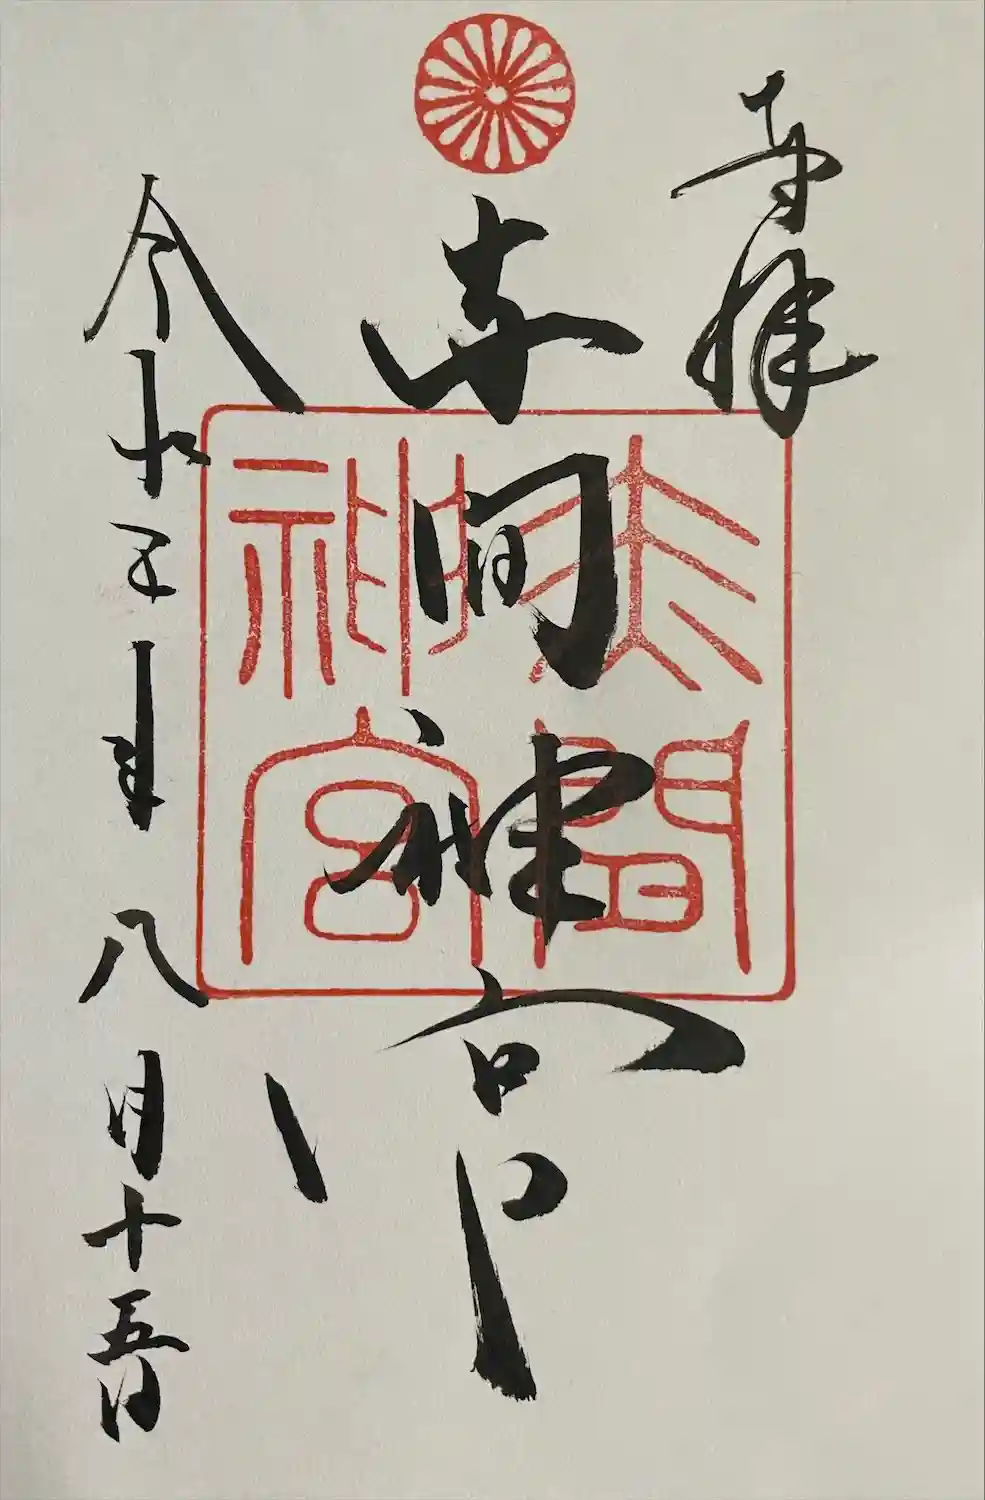 奉拝
赤間神宮
令和五年八月十五日
赤間
神宮